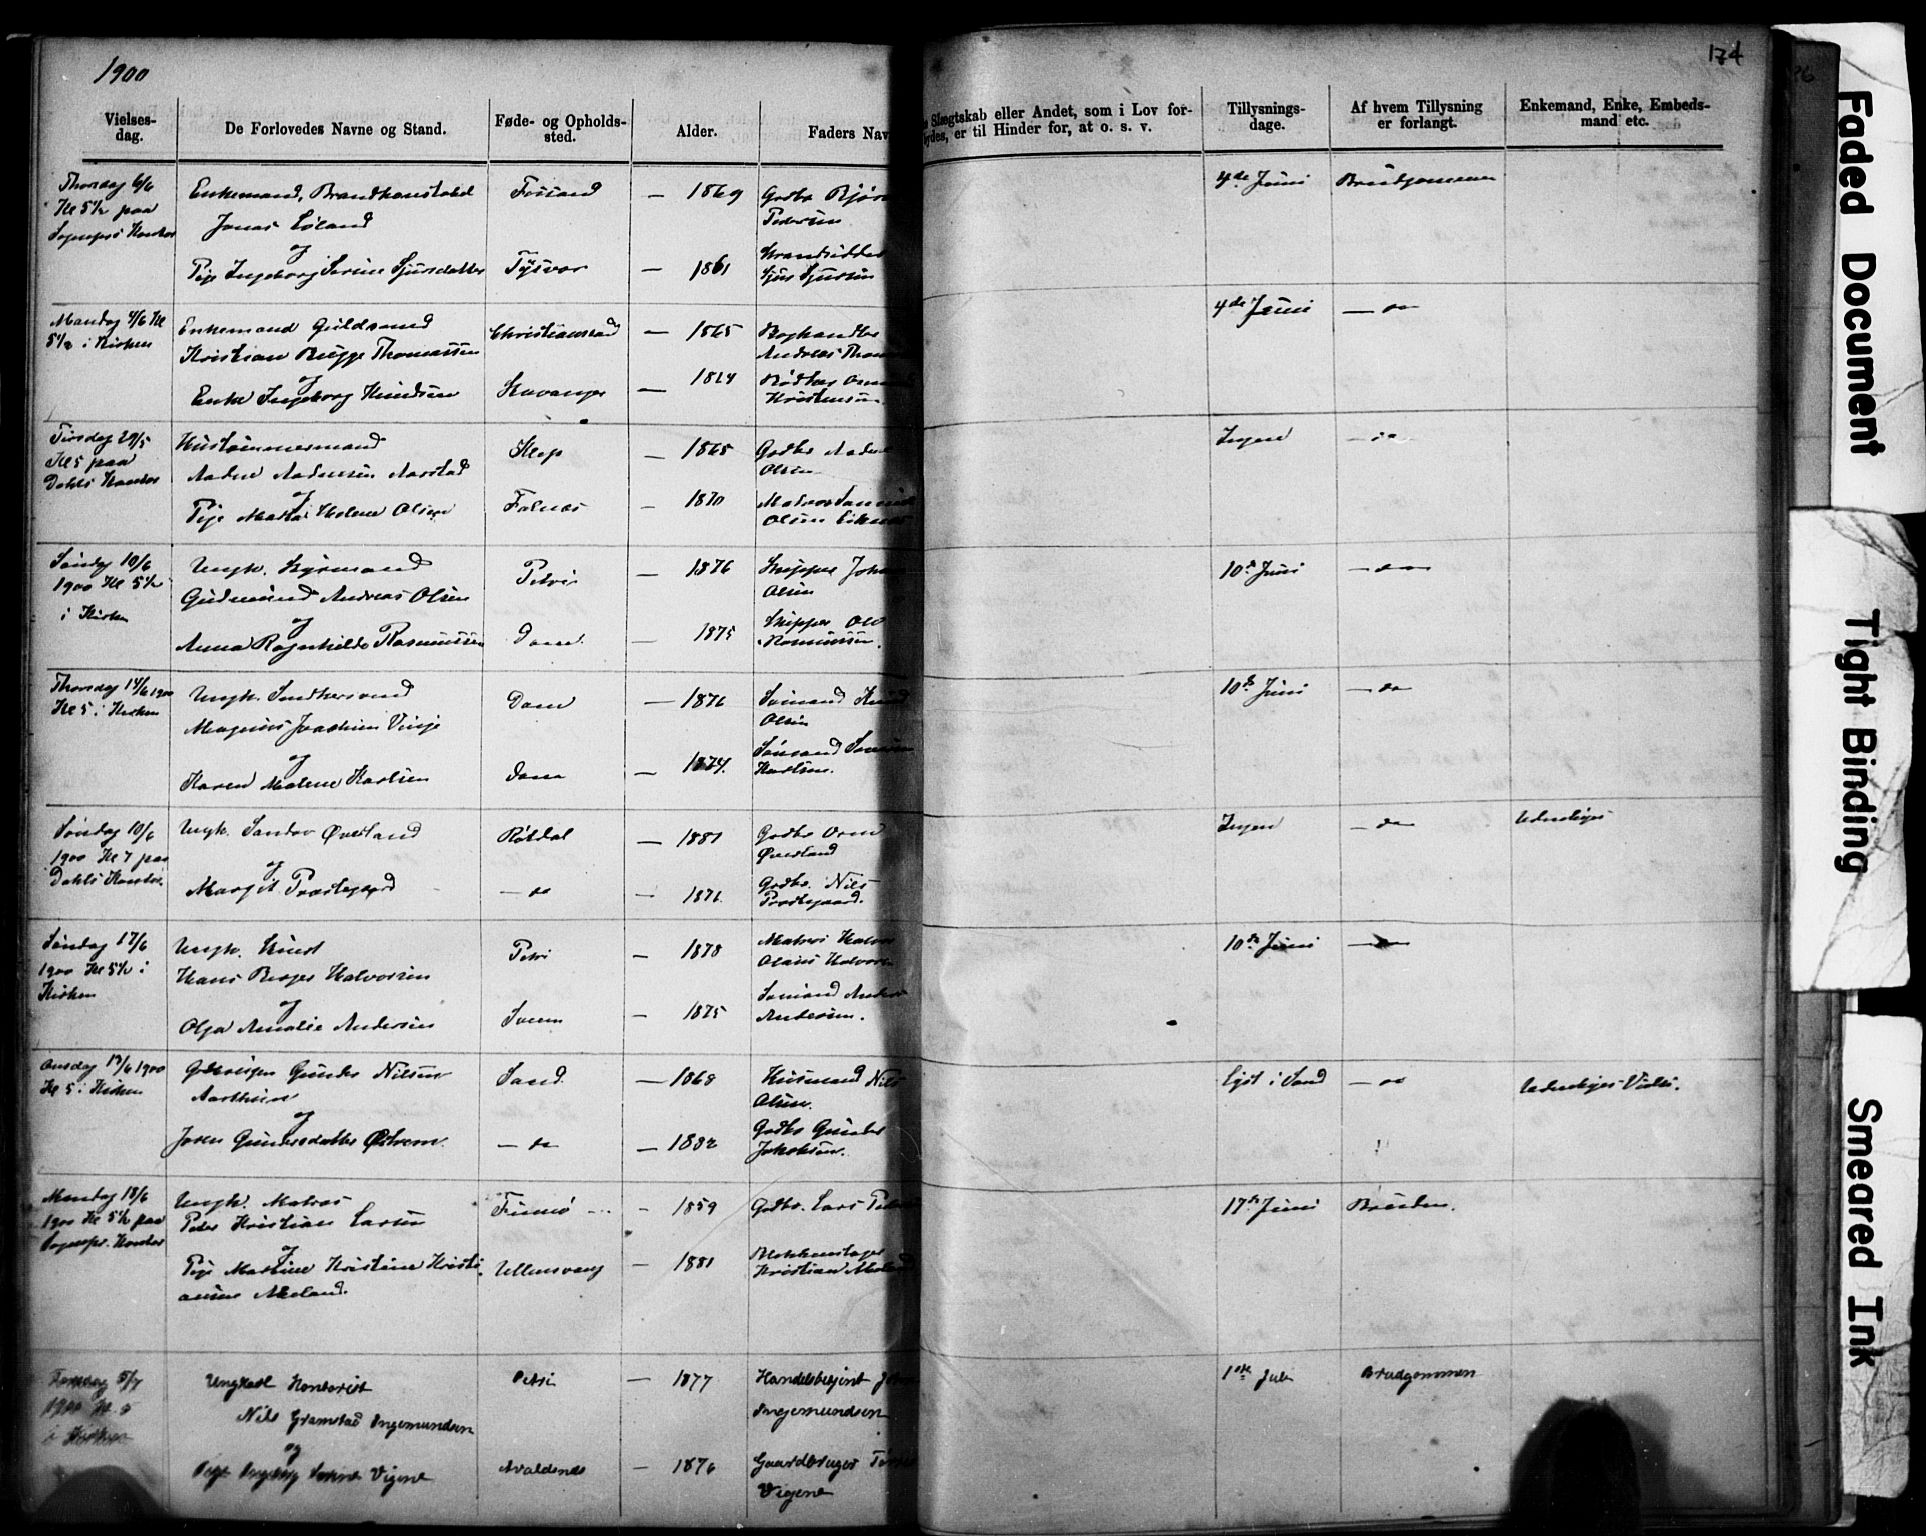 1900
174
Vielses-
dag.
De Forlovedes Navne og Stand.
Føde- og Opholds-
sted.
Alder.
Faders Nav
Slægtskab eller Andet, som i Lov for-
bydes, er til Hinder for, at o. s. v.
Tillysnings-
dage.
Af hvem Tillysning
er forlangt.
Enkemand, Enke, Embeds-
mand etc.
Thorsdag 6/6
Kl 5½ paa
Sogneprs Kontor
Enkemand, Brandkonstabel
Jonas Løland
og
Pige Ingeborg Serine Sjursdatter
Fossand
Tysvær
— 1869
— 1861
Gaardbr Bjørn
Pedersen
Strandsidder
Sjur Sjursen
4de Juni
Brudgommen
Mandag 4/6 Kl
5½ i Kirken
Enkemand Guldsmed
Kristian Bugge Thomassen
og
Enke Ingeborg Knudsen
Christianssad
Stavanger
— 1865
— 1864
Boghandler
Andreas Thom
Bødker
Kristensen
4de Juni
— do
Tirsdag 29/5
Kl 5 paa
Dahls Kontor
Hustømmermand
Aadne Aadnesen Aarstad
og
Pige Marta Helene Olsen
Klep
Falnæs
— 1865
— 1870
Gaardbr Aadne
Olsen
Matros
Olsen
Ingen
— do
Søndag 10/6
1900 Kl 5½
i Kirken
Ungk. Styrmand
Gudmund Andreas Olsen
og
Anna Ragnhilde Rasmussen
Petri
Dom
— 1876
— 1875
Skipper Johan
Olsen
Skipper Ole
Rasmussen.
10de Juni
— do
Thorsdag 14/6 1900
Kl 5 i Kirken
Ungk. Snedkersvend
Magnus Joachim Vinje
og
Karen Malene Karlsen
Dom
Dom
— 1876
— 1874.
Sømand Knud
Olsen
Sømand
Karlsen.
10de Juni
— do
Søndag 10/6
1900 Kl 7 paa
Dahls Kontor.
Ungk. Sandov Øverland
og
Margit Prestegard
Røldal
— do
— 1881
— 1876
Gaardbr Orm
Øverland
Gaardbr. Nils
Prestegaard.
Ingen
— do
Udenbyes
Søndag 17/6
1900 Kl 5½ i
Kirken
Ungk.
Hans Berges Halvorsen
og
Olga Amalie Andersen
Petri
— 1878
— 1875
Matros Halvor
Olaus Halvorsen
Sømand Anders
Andersen.
10de Juni
— do
Onsdag 13/6 1900
Kl 5 i Kirken
Gunder Nilsen
og
Joren Gundersdatter Østrem
Sand
— do
— 1868
— 1882
Husmand Nils
Olsen.
Gaardbr Gunder
Jakobsen.
Lyst i Sand
— do
Udenbyes Vielse.
Mandag 18/6
1900 Kl 5½ paa
Sognepr. Kontor
Ungk. Matros
Peder Kristian Larsen
og
Pige Martine Kristine Kristi-
ansen Meland.
Finnø
Ullensvang
— 1859
— 1881
Gaardbr. Lars Peder
Kristian Meland
17de Juni
Bruden.
Torsdag 5/7
1900 Kl. 5
i Kirken
Ungkarl Kontorist
Nils Gramstad Ingemundsen
og
Pige Ingeborg Serine Vigene
Petri
Avaldsnes
— 1877
— 1876
Handelsbetjent
Ingemundsen
Gaardbruger
Vigene
1ste Juli
Brudgommen
Faded Document
Tight Binding
Smeared Ink